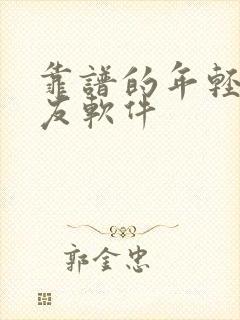 靠譜的年輕
友軟件
郭金忠